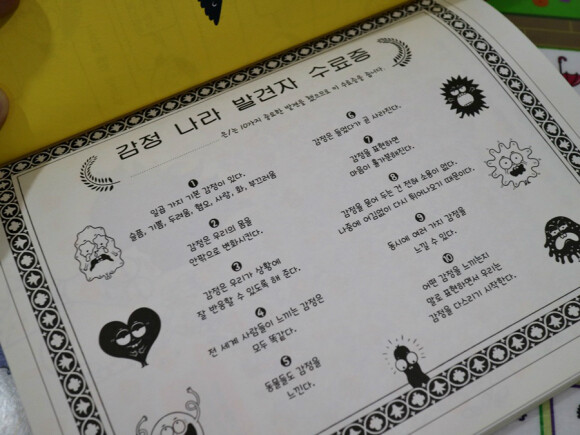 감정 나라 발견자 수료증
은/는 10가지 중요한 발견을 했으므로 이 수료증을 줍니다.
1
일곱 가지 기본 감정이 있다.
슬픔, 기쁨, 두려움, 혐오, 사랑, 화, 부끄러움
2
감정은 우리의 몸을
안팎으로 변화시킨다.
3
감정은 우리가 상황에
잘 반응할 수 있도록 해 준다.
4
전 세계 사람들이 느끼는 감정은
모두 똑같다.
5
동물들도 감정을
느낀다.
6
감정은 들었다가 곧 사라진다.
7
감정을 표현하면
마음이 홀가분해진다.
8
감정을 묻어 두는 건 전혀 소용이 없다.
나중에 어김없이 다시 튀어나오기 때문이다.
9
동시에 여러 가지 감정을
느낄 수 있다.
10
어떤 감정을 느끼는지
말로 표현하면서 우리는
감정을 다스리기 시작한다.